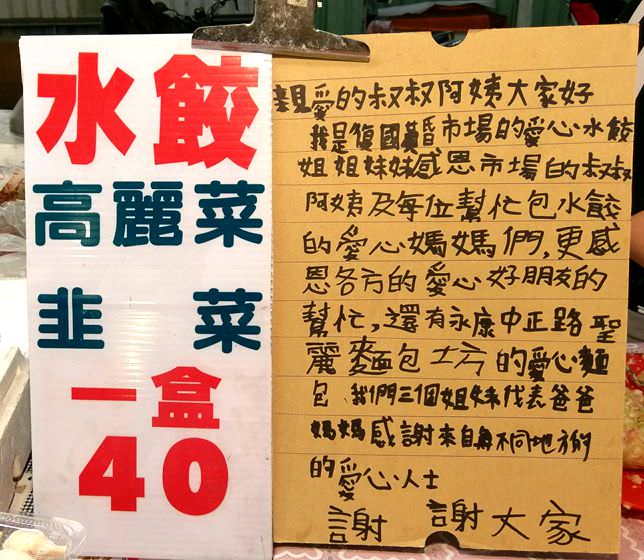 水餃
高麗菜
韭菜
一盒
40
親愛的叔叔阿姨大家好
我是復國黃昏市場的愛心水餃
姐姐妹妹感恩市場的叔叔
阿姨及每位幫忙包水餃
的愛心媽媽們,更感
恩各方的愛心好朋友的
幫忙,還有永康中正路聖
麗麵包坊的愛心麵
包,我們三個姐妹代表爸爸
媽媽感謝來自無不同地方的
的愛心人士
謝謝大家